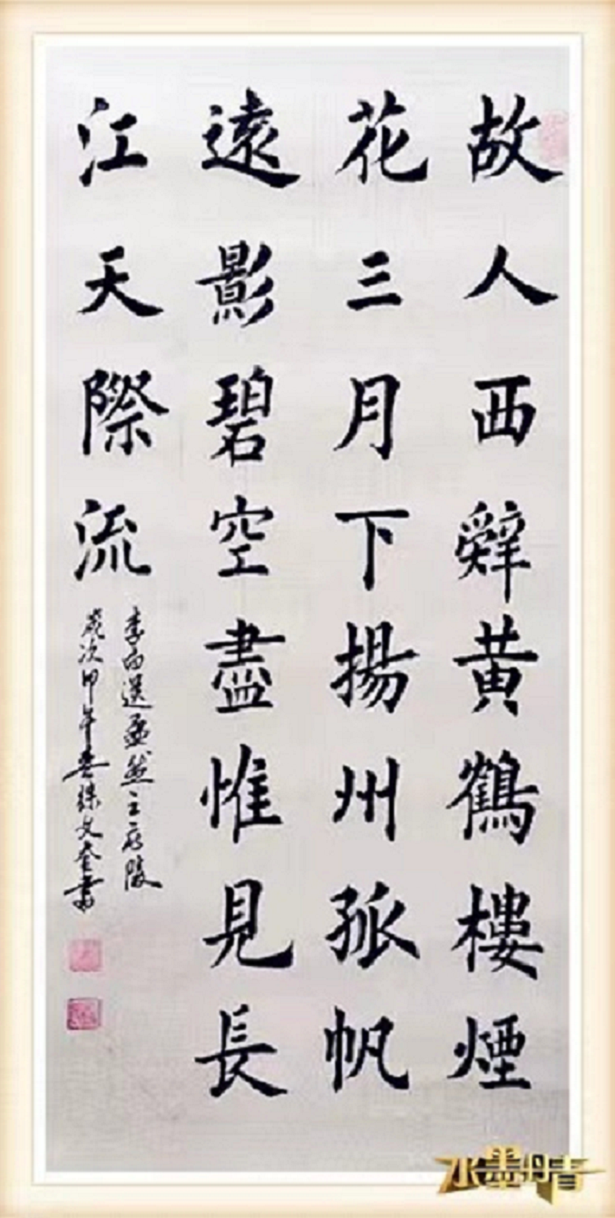 故人西辭黃鶴樓煙
花三月下揚州孤帆
遠影碧空盡惟見長
江天際流
李白送孟然之廣陵
歲次甲午春陳文奎書
水墨丹青